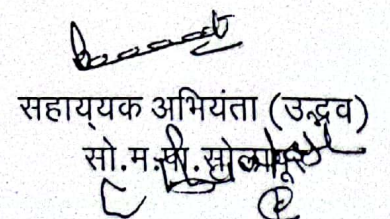 सहाय्यक अभियंता (उद्भव)
सो.म.पा.सोलापूर